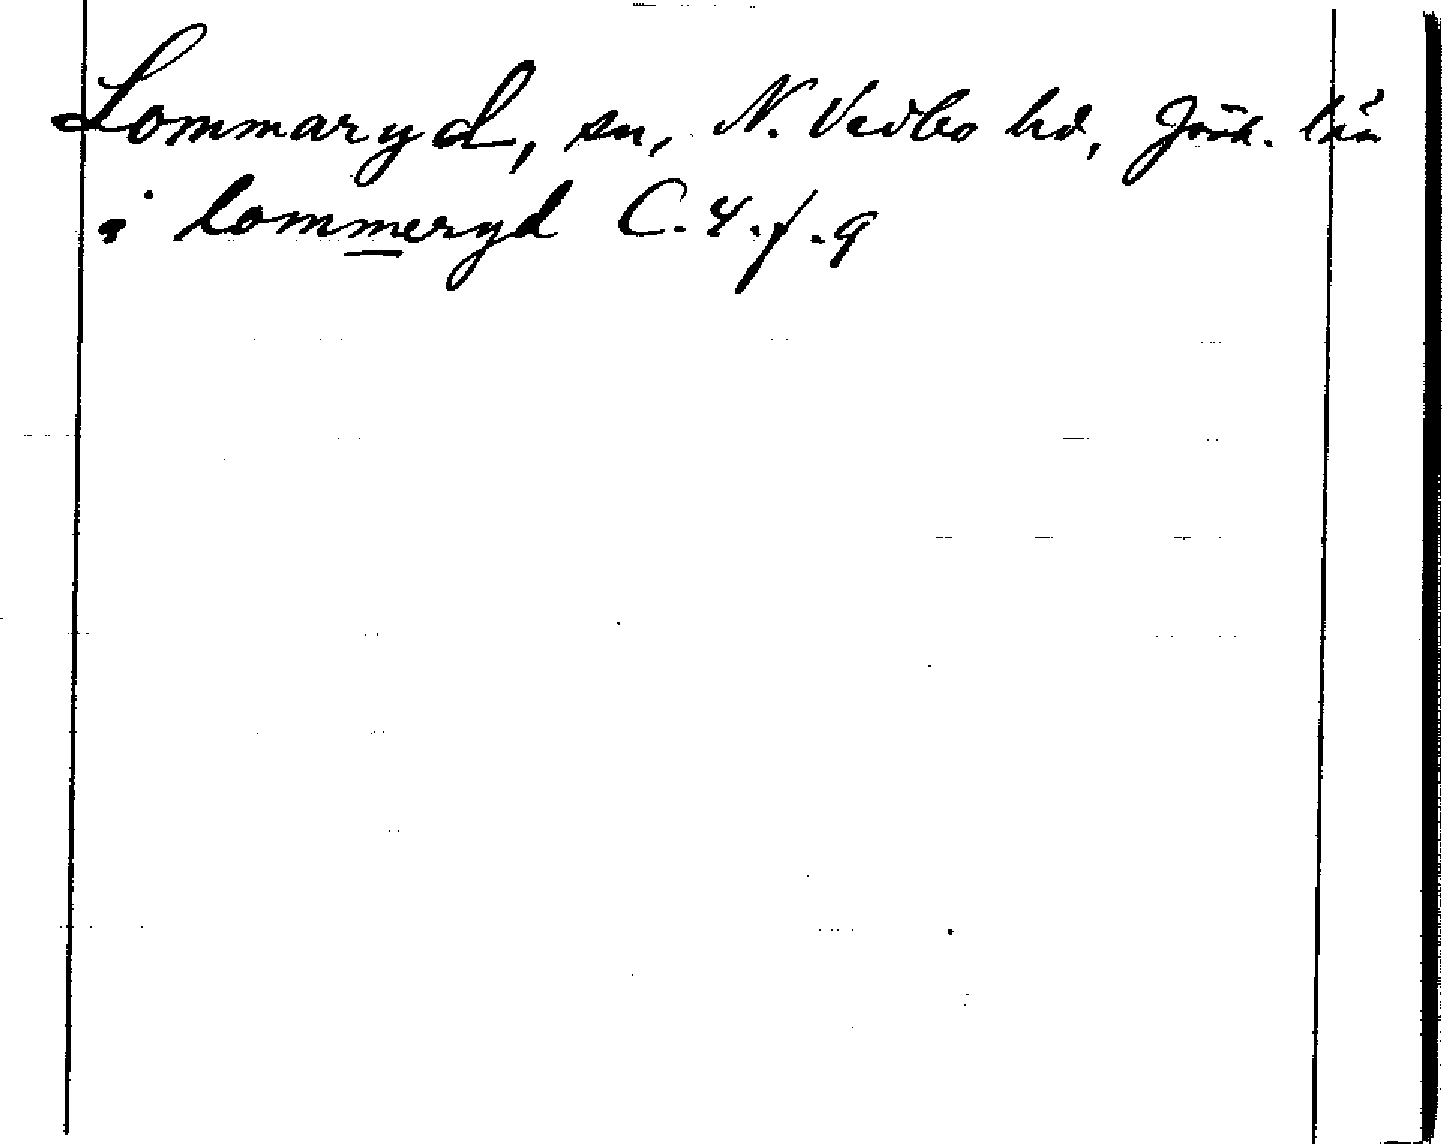 Lommaryd, sn, N. Vedbo hd, Jönk. län
i lommeryd C.4.f.9